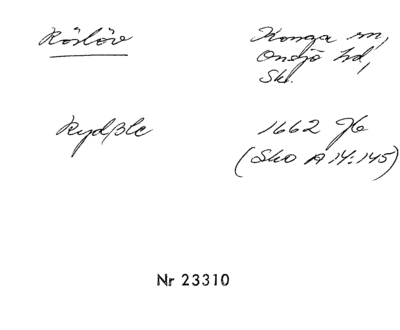 Röslöv
Konga sn,
Onsjö hd,
Sk.
Rydzle
1662 Jb
(Sko A 14:145)
Nr 23310